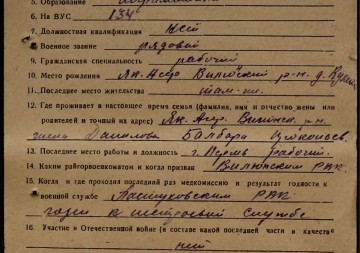 5. Образование
6. На ВУС 134
7. Должностная квалификация нет
8. Военное звание рядовой
9. Гражданская специальность рабочий
10. Место рождения Як. Асср Вилюйский р-н. д.
11. Последнее место жительства там-же.
12. Где проживает в настоящее время семья (фамилия, имя и отчество жены или
родителей и точный их адрес) Як. Асср. Вилюйск. р-н.
Данилова
13. Последнее место работы и должность рабочий.
14. Каким райгорвоенкоматом и когда призван Вилюйским РВК.
15. Когда и где проходил последний раз медкомиссию и результат годности к
военной службе РВК
годен в службе
16. Участие в Отечественной войне (в составе какой последней части и качестве
ний